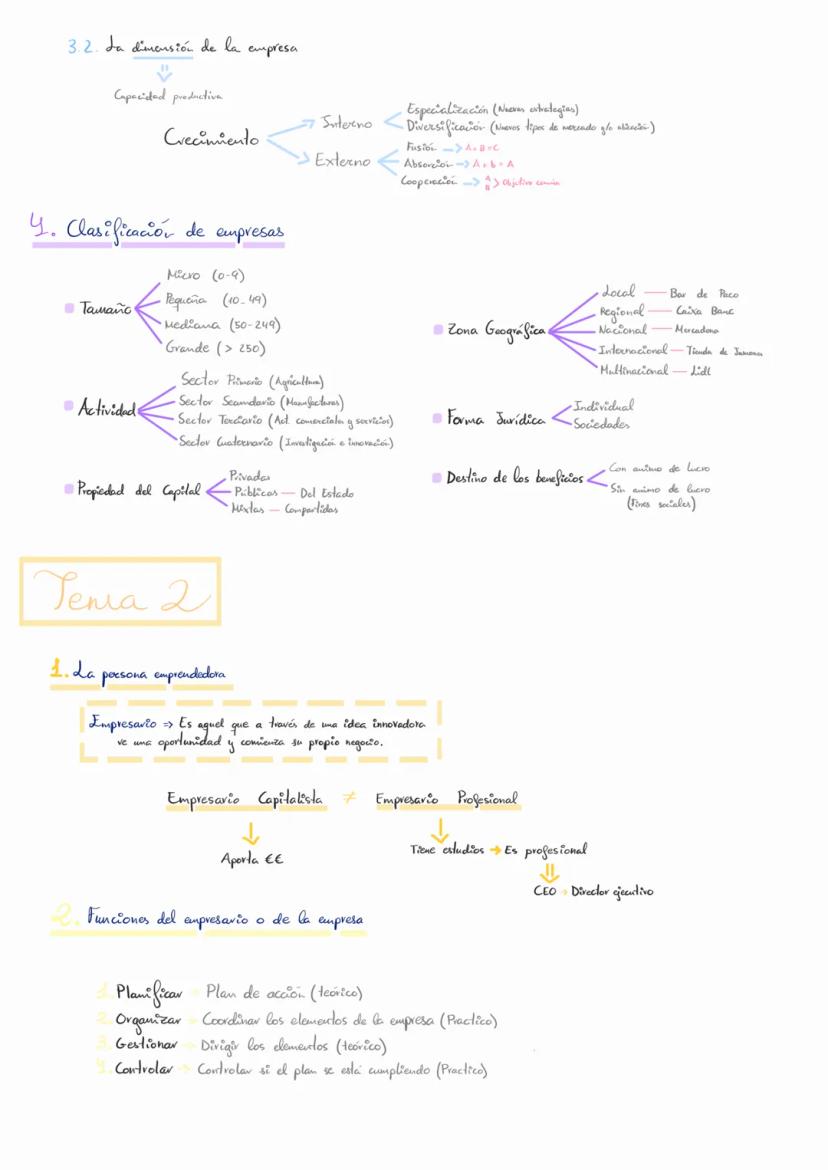 3.2. La dimensión de la empresa
Capacidad productiva
Crecimiento
Interno
Especialización (Nuevas estrategias)
Diversificación (Nuevos tipos de mercado y/o ubicación)
Externo
Fusión → A+B=C
Absorción → A+b=A
Cooperación → A B > Objetivo común
4. Clasificación de empresas
Tamaño
Micro (0-9)
Pequeña (10-49)
Mediana (50-249)
Grande (> 250)
Actividad
Sector Primario (Agricultura)
Sector Secundario (Manufacturas)
Sector Terciario (Act. comerciales y servicios)
Sector Cuaternario (Investigación e innovación)
Propiedad del Capital
Privadas
Públicas — Del Estado
Mixtas — Compartidas
Zona Geográfica
Local — Bar de Paco
Regional — Caixa Banc
Nacional — Mercadona
Internacional — Tienda de Jamones
Multinacional — Lidl
Forma Jurídica
Individual
Sociedades
Destino de los beneficios
Con animo de lucro
Sin animo de lucro
(Fines sociales)
Tema 2
1. La persona emprendedora
Empresario => Es aquel que a través de una idea innovadora
ve una oportunidad y comienza su propio negocio.
Empresario Capitalista ≠ Empresario Profesional
Aporta €€
Tiene estudios → Es profesional
CEO → Director ejecutivo
2. Funciones del empresario o de la empresa
1. Planificar → Plan de acción (teórico)
2. Organizar → Coordinar los elementos de la empresa (Practico)
3. Gestionar → Dirigir los elementos (teórico)
4. Controlar → Controlar si el plan se está cumpliendo (Practico)